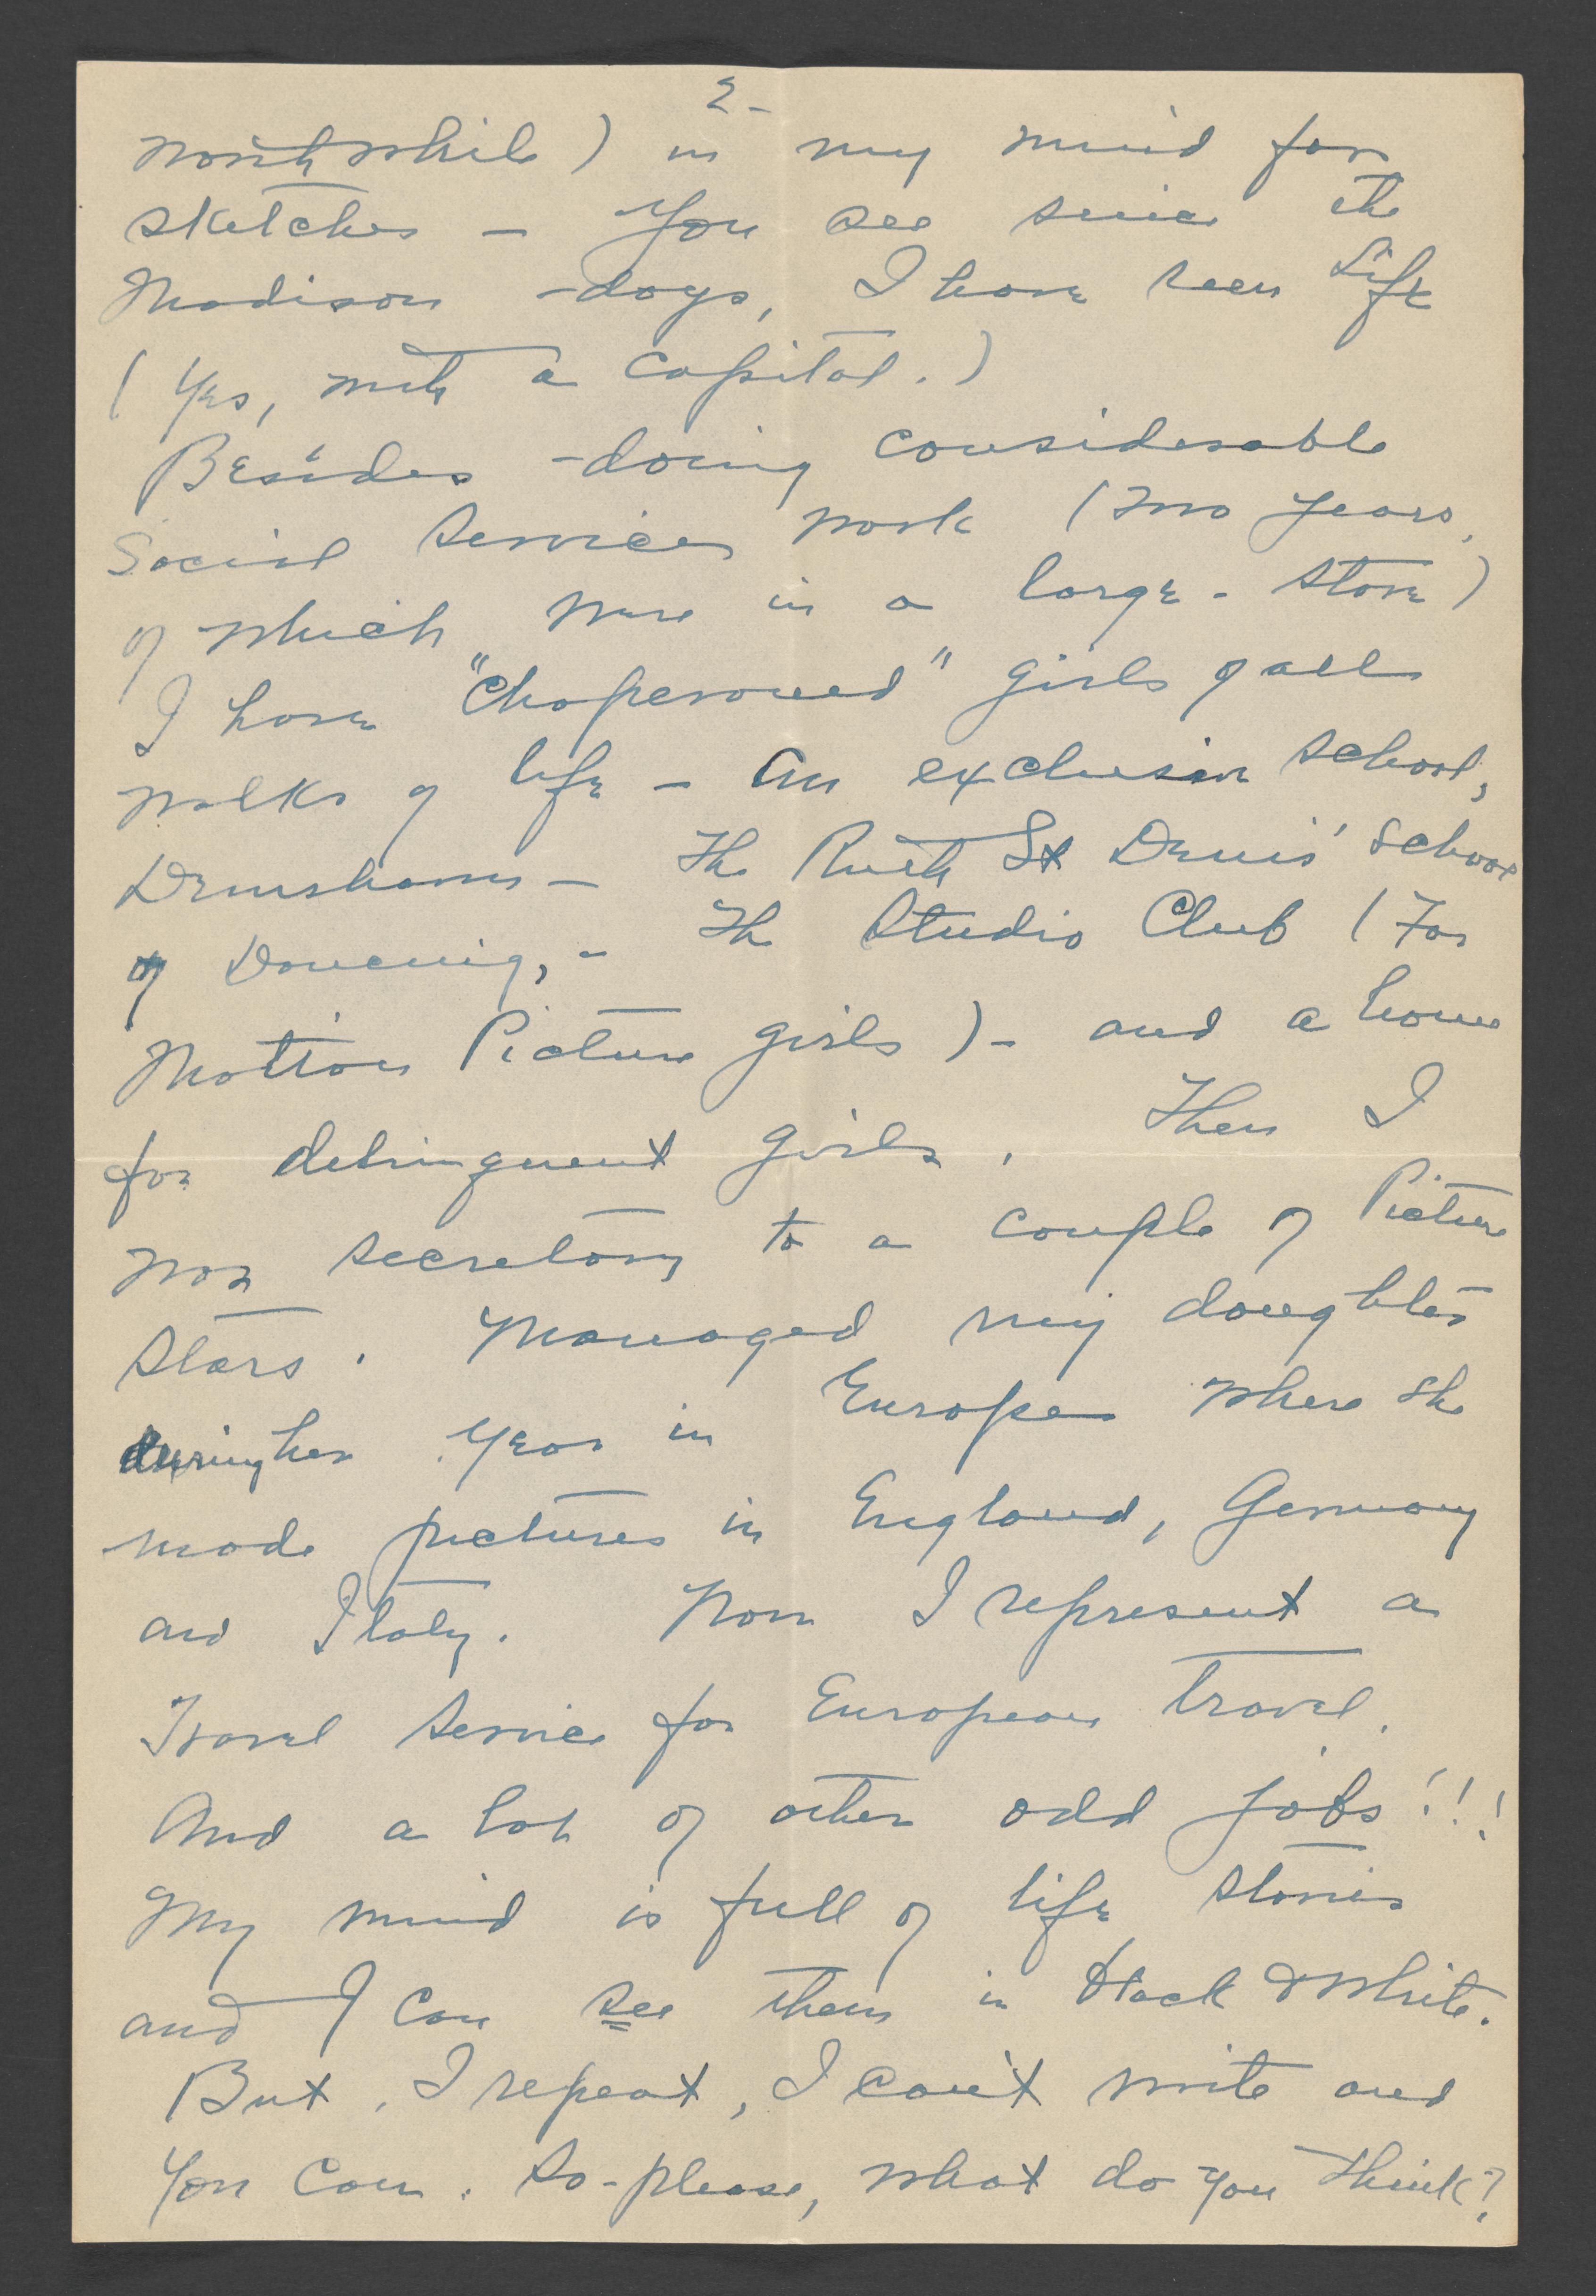 2-
worth while) in my mind for
sketches - You see since the
Madison - days, I have seen Life
(Yes, with a capital.)
Besides - doing considerable
Social Service work (two years,
of which were in a large - store)
I have "chaperoned" girls of all
walks of life - An exclusive school,
Denishawn - The Ruth St Denis' School
of Dancing, - The Studio Club (For
Motion Picture girls) - and a home
for delinquent girls. Then I
was secretary to a couple of Picture
Stars. Managed my daughter
during her year in Europe where she
made pictures in England, Germany
and Italy. Now I represent a
Travel Service for European travel.
And a lot of other odd jobs!!!
My mind is full of life stories
and I can see them in black & white.
But, I repeat, I can't write and
you can. So - please, what do you think?